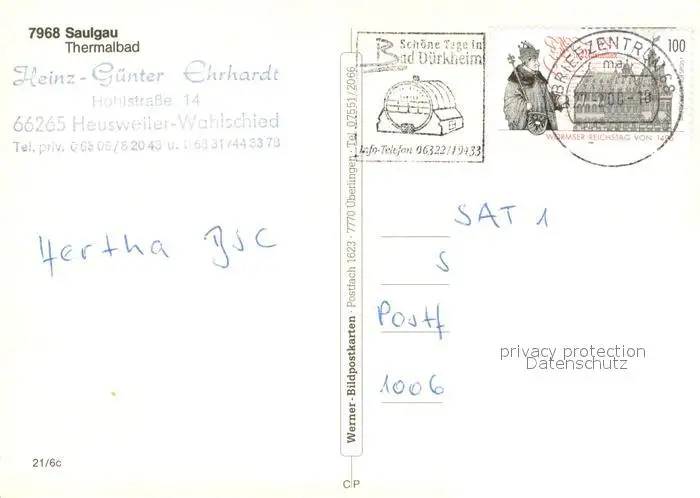 7968 Saulgau
Thermalbad
Heinz-Günter Ehrhardt
Hohlstraße 14
66265 Heusweiler-Wahlschied
Tel. priv. 0 68 06 / 8 20 43 u. 0 68 31 / 44 33 78
Hertha BSC
21/6c
Werner-Bildpostkarten · Postfach 1623 · 7770 Überlingen · Tel. 07551/2066
CP
Schöne Tage in
Bad Dürkheim
Info-Telefon 06322/19433
100
BRIEFZENTRUM 68
ma
WORMSER REICHSTAG VON 1495
SAT 1
S
Postf
1006
privacy protection
Datenschutz